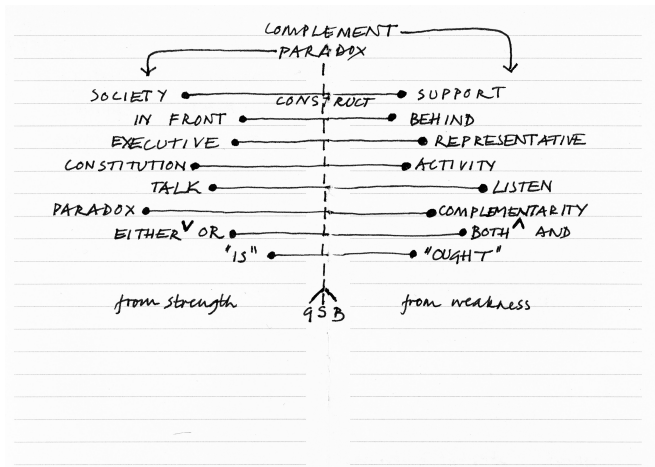 COMPLEMENT
PARADOX
SOCIETY SUPPORT
CONSTRUCT
IN FRONT BEHIND
EXECUTIVE REPRESENTATIVE
CONSTITUTION ACTIVITY
TALK LISTEN
PARADOX COMPLEMENTARITY
EITHER ∨ OR BOTH ∧ AND
"IS" "OUGHT"
from strength from weakness
9 S B